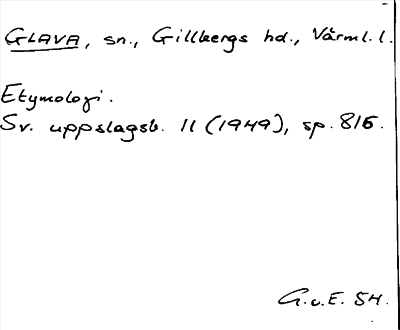 GLAVA, sn., Gillbergs hd., Värml. l.
Etymologi.
Sv. uppslagsb. 11 (1949), sp. 816.
G.v.E. 54.